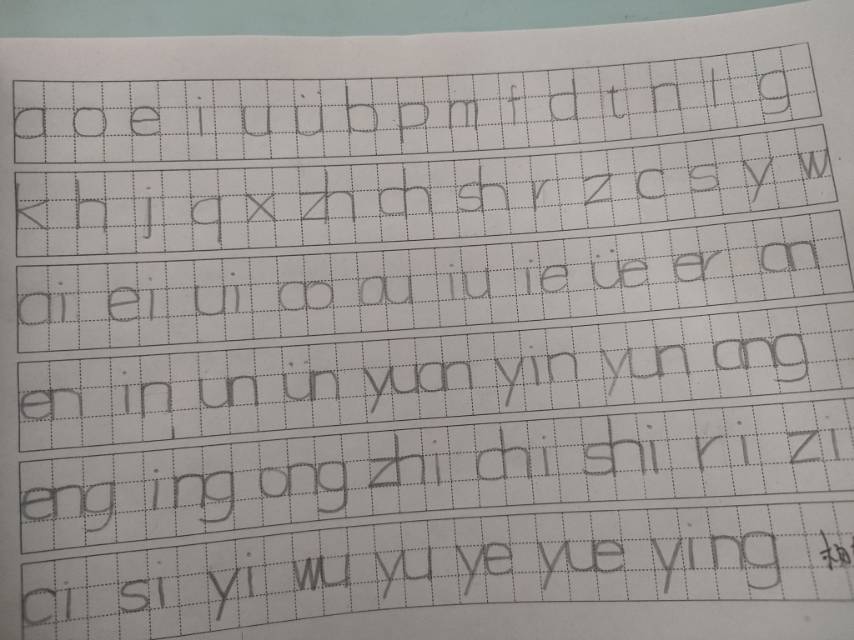 a o e i u ü b p m f d t n l g
k h j q x zh ch sh r z c s y w
ai ei ui ao ou iu ie üe er an
en in un ün yuan yin yun ang
eng ing ong zhi chi shi ri zi
ci si yi wu yu ye yue ying